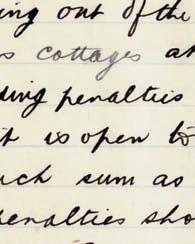 ing out of the
s cottages a
ding penalties
it is open to
uch sum as
penalties sho